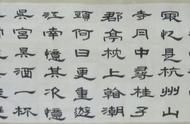 最憶是杭州山
寺月中尋桂子
郡亭枕上看潮
頭何日更重遊
江南憶其次憶
吳宮吳酒一杯